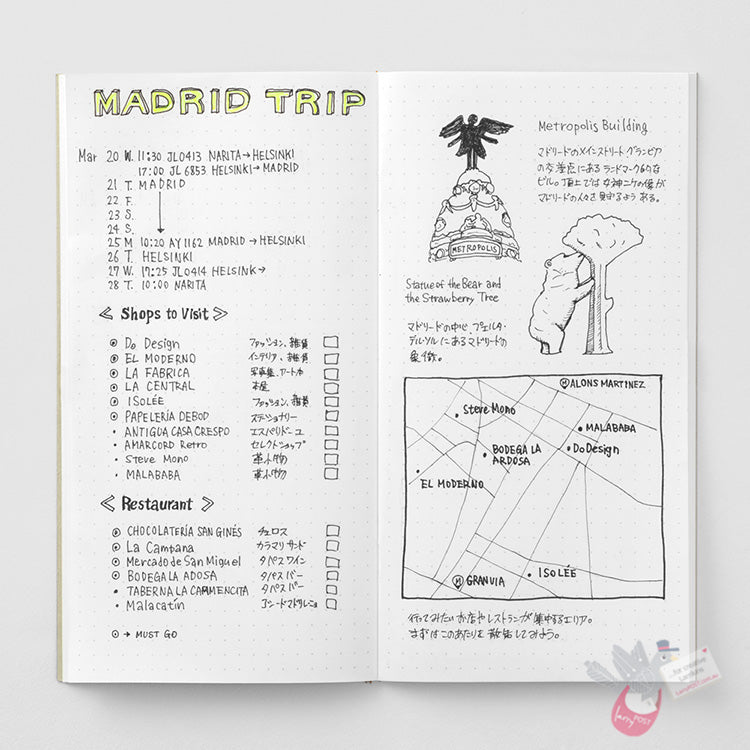 MADRID TRIP
Mar 20 W. 11:30 JL0413 NARITA→HELSINKI
17:00 JL 6853 HELSINKI→MADRID
21 T. MADRID
22 F.
23 S.
24 S.
25 M 10:20 AY1162 MADRID→HELSINKI
26 T. HELSINKI
27 W. 17:25 JL0414 HELSINK→
28 T. 10:00 NARITA
≪ Shops to Visit ≫
⦿ Do Design ファッション、雑貨 □
⦿ EL MODERNO インテリア、雑貨 □
⦿ LA FABRICA 写真集、アート本 □
⦿ LA CENTRAL 本屋 □
⦿ ISOLÉE ファッション、雑貨 □
⦿ PAPELERÍA DEBOD ステーショナリー □
・ ANTIGUA CASA CRESPO エスパドリーユ □
・ AMARCORD Retro セレクトショップ □
・ Steve Mono 革小物 □
・ MALABABA 革小物 □
≪ Restaurant ≫
⦿ CHOCOLATERÍA SAN GINÉS チュロス □
⦿ La Campana カラマリサンド □
⦿ Mercado de San Miguel タパスワイン □
⦿ BODEGA LA ADOSA タパスバー □
・ TABERNA LA CARMENCITA タパスバー □
・ Malacatín コシードマドリレーニョ □
⊙→ MUST GO
Metropolis Building
マドリードのメインストリート グランビア
の交差点にあるランドマーク的な
ビル。頂上では女神ニケの像が
マドリードの人々を見守るようある。
METROPOLIS
Statue of the Bear and
the Strawberry Tree
マドリードの中心、プエルタ・
デル・ソルにあるマドリードの
象徴。
Ⓜ ALONS MARTINEZ
Steve Mono
MALABABA
Do Design
BODEGA LA
ARDOSA
EL MODERNO
ISOLÉE
Ⓜ GRANVIA
行ってみたいお店やレストランが集中するエリア。
まずはこのあたりを散策してみよう。
for creative
larryPOST.com.au
larry POST